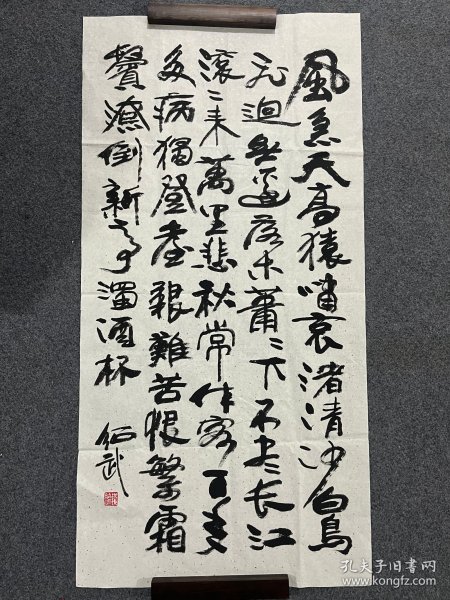 風急天高猿嘯哀渚清沙白鳥
飛迴無邊落木蕭〻下不尽长江
滚〻来萬里悲秋常作客百年
多病獨登臺艱難苦恨繁霜
鬢潦倒新亭濁酒杯
武
孔夫子旧书网
www.kongfz.com